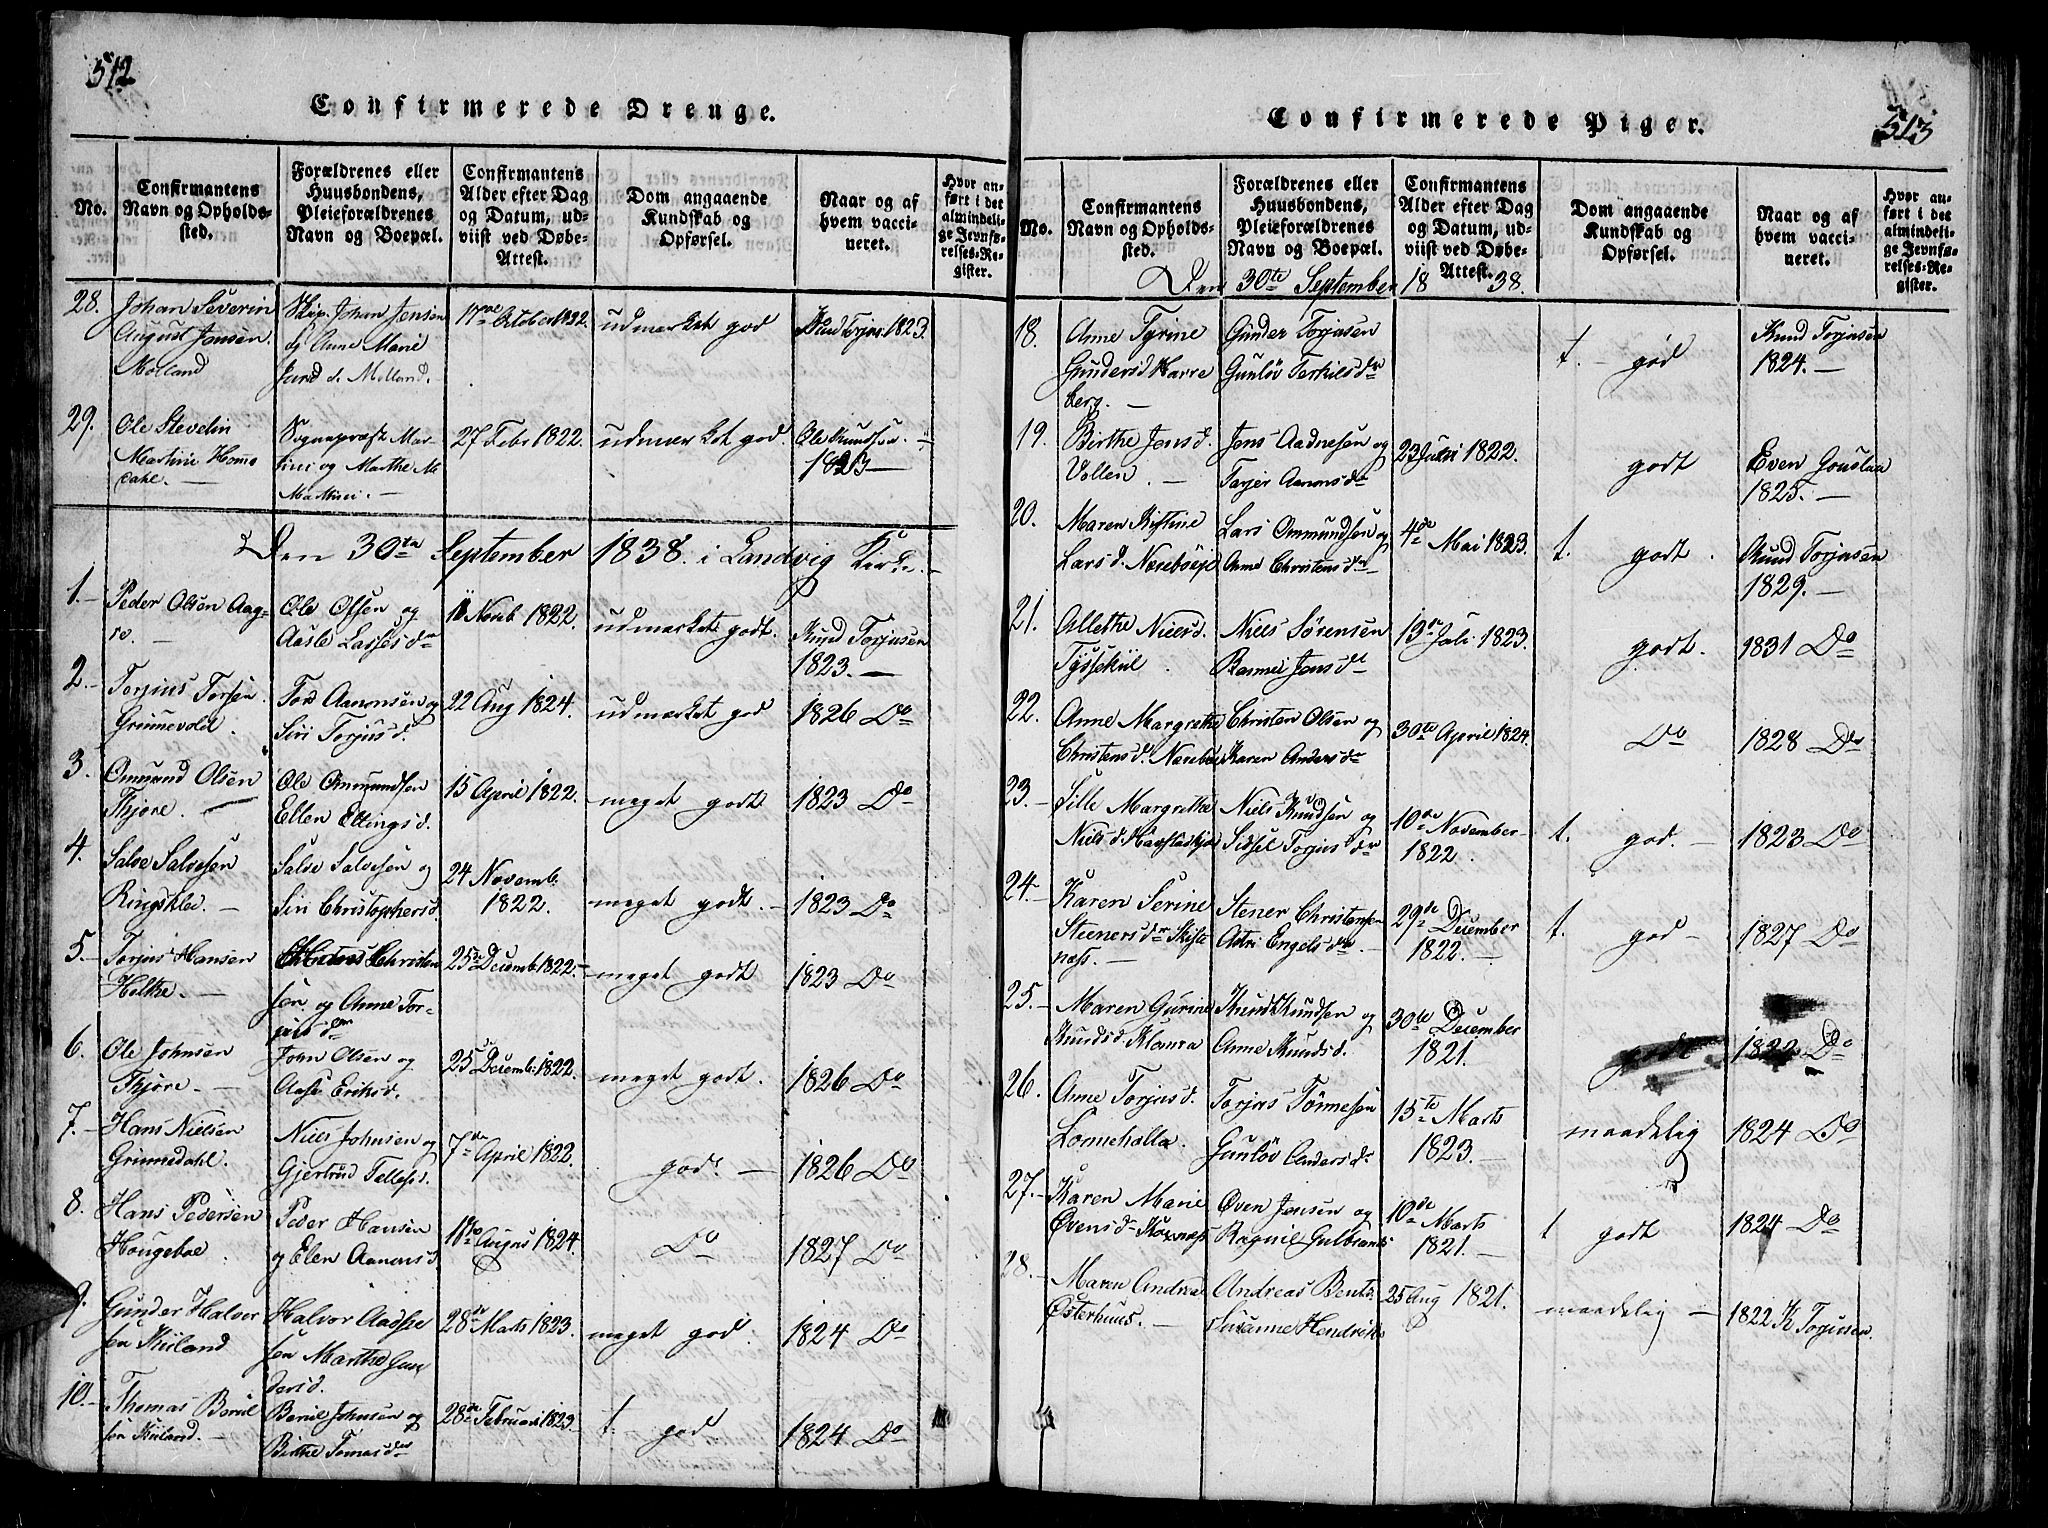 512
Confirmerede Drenge.
No.
Confirmantens
Navn og Opholds-
sted.
Forældrenes eller
Huusbondens,
Pleieforældrenes
Navn og Boepæl.
Confirmantens
Alder efter Dag
og Datum, ud-
viist ved Døbe-
Attest.
Dom angaaende
Kundskab og
Opførsel.
Naar og af
hvem vacci-
neret.
Hvor an-
ført i det
almindeli-
ge Jevnfø-
relses-Re-
gister.
28. Johan Severin
August Jensen
Molland
Skip. Johan Jensen
og Anne Marie
October 1822.
udmærket god
Knud Torjus. 1823.
29. Ole Stevelin
Martini Homme
dahl. —
Sognepræst Mar-
tini og Marthe M
Martini. —
27 Febr 1822.
udmærket god
Ole Knudsen.
Den 30te September 1838. i Landvig Kirke. —
1. — Peder Olsen Aag-
re. —
Ole Olsen og
Aasle Lasses dr
11 Novb 1822.
udmærket godt.
Knud Torjusen
1823. —
2. — Torjus Torsen
Grimevold.
Tore Aanonsen og
Siri Torjus d.
22 Aug 1824.
udmærket god
1826 Do
3. Ommund Olsen
Thjore. —
Ole Ommundsen
Ellen Ellings d.
15 April 1822.
meget godt
1823 Do
4. Salve Salvesen
Ringsklev. —
Salve Salvesen og
Siri Christophers d.
24 Novemb.
1822.
meget godt. —
1823 Do
5. — Torjus Hansen
Holte. —
Christen
sen og Anne Tor-
jus dr
25de Decemb 1822. —
meget godt
1823 Do
6. Ole Johnsen
Thjore. —
John Olsen og
Aase Eriks d.
25de Decemb. 1822.
meget godt.
1826 Do
7. — Hans Nielsen
Grimedahl.
Niels Johnsen og
Gjertrud Tellefs d.
7de April 1822.
god. —
1826 Do
8. Hans Pedersen
Hougeboe.
Peder Hansen
og Elen Aanons d
August 1824.
Do
1827 Do
9. Gunder Halvor
sen Kiiland
Halvor Aadne
sen Marthe Gun
ders d.
28de Marts 1823.
meget god.
1824 Do
10. — Thomas Beruld
sen Kiiland. —
Beruld Johnsen og
Birthe Tomas dr
28de Februari 1823
t. god
1824 Do
513
Confirmerede Piger.
No.
Confirmantens
Navn og Opholds-
sted.
Forældrenes eller
Huusbondens,
Pleieforældrenes
Navn og Boepæl.
Confirmantens
Alder efter Dag
og Datum, ud-
viist ved Døbe-
Attest.
Dom angaaende
Kundskab og
Opførsel.
Naar og af
hvem vacci-
neret.
Hvor an-
ført i det
almindeli-
ge Jevnfø-
relses-Re-
gister.
Den 30te September 1838.
18. Anne Tyrine
Gunders d Harre
berg. —
Gunder Torjusen
Gunløv Terkils dr
t. — god
Knud Torjusen
1824. —
19. Birthe Jens d.
Vollen. —
Jens Aadnesen og
Torjer Aanons dr
23 Juli 1822.
godt
Even Gouslaa
1825. —
20. Maren Kistine
Lars d. Nærebøeje
Lars Ommundsen og
Anne Christens dr
4de Mai 1823.
t. godt.
Knud Torjusen
1829. —
21. Allethe Niels d.
Tysseküil.
Niels Sörensen
Jens dr
13de Juli 1823.
godt.
1831 Do
22. Anne Margrethe
Christens d. Nærebøe
Christen Olsen og
Karen Anders dr
30te April 1824.
Do
1828 Do
23. — Sille Margrethe
Niels d.
Niels Knudsen og
Sissel Torjus dr
10de November
1822.
t. god. —
1823 Do
24. — Karen Serine
Steeners dr Kiste
næs. —
Stener Christensen
Astri Engels dr. —
29de December
1822. —
t. god —
1827 Do
25. — Maren Gurine
Knuds d
Knud Knudsen og
Anne Knuds d.
30te December
1821.
godt
1822 Do
26. Anne Torjus d.
Lonneholla.
Torjus Tönnesen
Gunløv Anders dr
15te Marts
1823. —
maadelig
1824 Do
27. — Karen Marie
Övens d.
Öven Jensen og
Ragnil Gulbrands
10de Marts
1821. —
t godt
1824 Do
28. — Maren Andrea
Østerhuus. —
Andreas Bents.
Susanne Hendriks
25 Aug 1821.
maadelig —
1822 K Torjusen.